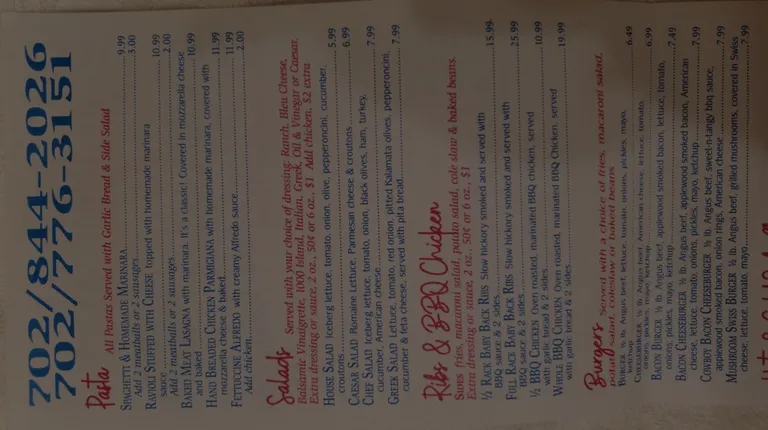 702/844-2026
702/776-3151
Pasta All Pastas Served with Garlic Bread & Side Salad
SPAGHETTI & HOMEMADE MARINARA 9.99
Add 2 meatballs or 2 sausages 3.00
RAVIOLI STUFFED WITH CHEESE topped with homemade marinara
sauce 10.99
Add 2 meatballs or 2 sausages 2.00
BAKED MEAT LASAGNA with marinara. It's a classic! Covered in mozzarella cheese
and baked 10.99
HAND BREADED CHICKEN PARMIGIANA with homemade marinara, covered with
mozzarella cheese & baked 11.99
FETTUCCINE ALFREDO with creamy Alfredo sauce 11.99
Add chicken 2.00
Salads Served with your choice of dressing: Ranch, Bleu Cheese,
Balsamic Vinaigrette, 1000 Island, Italian, Greek, Oil & Vinegar or Caesar.
Extra dressing or sauce, 2 oz., 50¢ or 6 oz., $1 Add chicken, $2 extra
HOUSE SALAD Iceberg lettuce, tomato, onion, olive, pepperoncini, cucumber,
croutons 5.99
CAESAR SALAD Romaine Lettuce, Parmesan cheese & croutons 6.99
CHEF SALAD Iceberg lettuce, tomato, onion, black olives, ham, turkey,
cucumber, American cheese 7.99
GREEK SALAD Lettuce, tomato, red onion, pitted Kalamata olives, pepperoncini,
cucumber & feta cheese, served with pita bread 7.99
Ribs & BBQ Chicken
SIDES fries, macaroni salad, potato salad, cole slaw & baked beans.
Extra dressing or sauce, 2 oz., 50¢ or 6 oz., $1
½ RACK BABY BACK RIBS Slow hickory smoked and served with
BBQ sauce & 2 sides 15.99
FULL RACK BABY BACK RIBS Slow hickory smoked and served with
BBQ sauce & 2 sides 25.99
½ BBQ CHICKEN Oven roasted, marinated BBQ chicken, served
with garlic bread & 2 sides 10.99
WHOLE BBQ CHICKEN Oven roasted, marinated BBQ Chicken, served
with garlic bread & 2 sides 19.99
Burgers Served with a choice of fries, macaroni salad,
potato salad, coleslaw or baked beans
BURGER ½ lb. Angus beef, lettuce, tomato, onions, pickles, mayo,
ketchup 6.49
CHEESEBURGER ½ lb. Angus beef, American cheese, lettuce, tomato,
onions, pickles, mayo, ketchup 6.99
BACON BURGER ½ lb. Angus beef, applewood smoked bacon, lettuce, tomato,
onions, pickles, mayo, ketchup 7.49
BACON CHEESEBURGER ½ lb. Angus beef, applewood smoked bacon, American
cheese, lettuce, tomato, onions, pickles, mayo, ketchup 7.99
COWBOY BACON CHEESEBURGER ½ lb. Angus beef, sweet-n-tangy bbq sauce,
applewood smoked bacon, onion rings, American cheese 7.99
MUSHROOM SWISS BURGER ½ lb. Angus beef, grilled mushrooms, covered in Swiss
cheese, lettuce, tomato, mayo 7.99